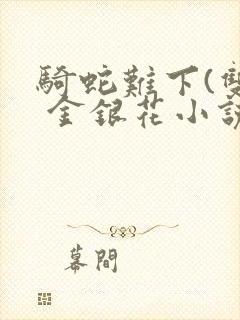 騎蛇難下(雙
金銀花小說
幕間